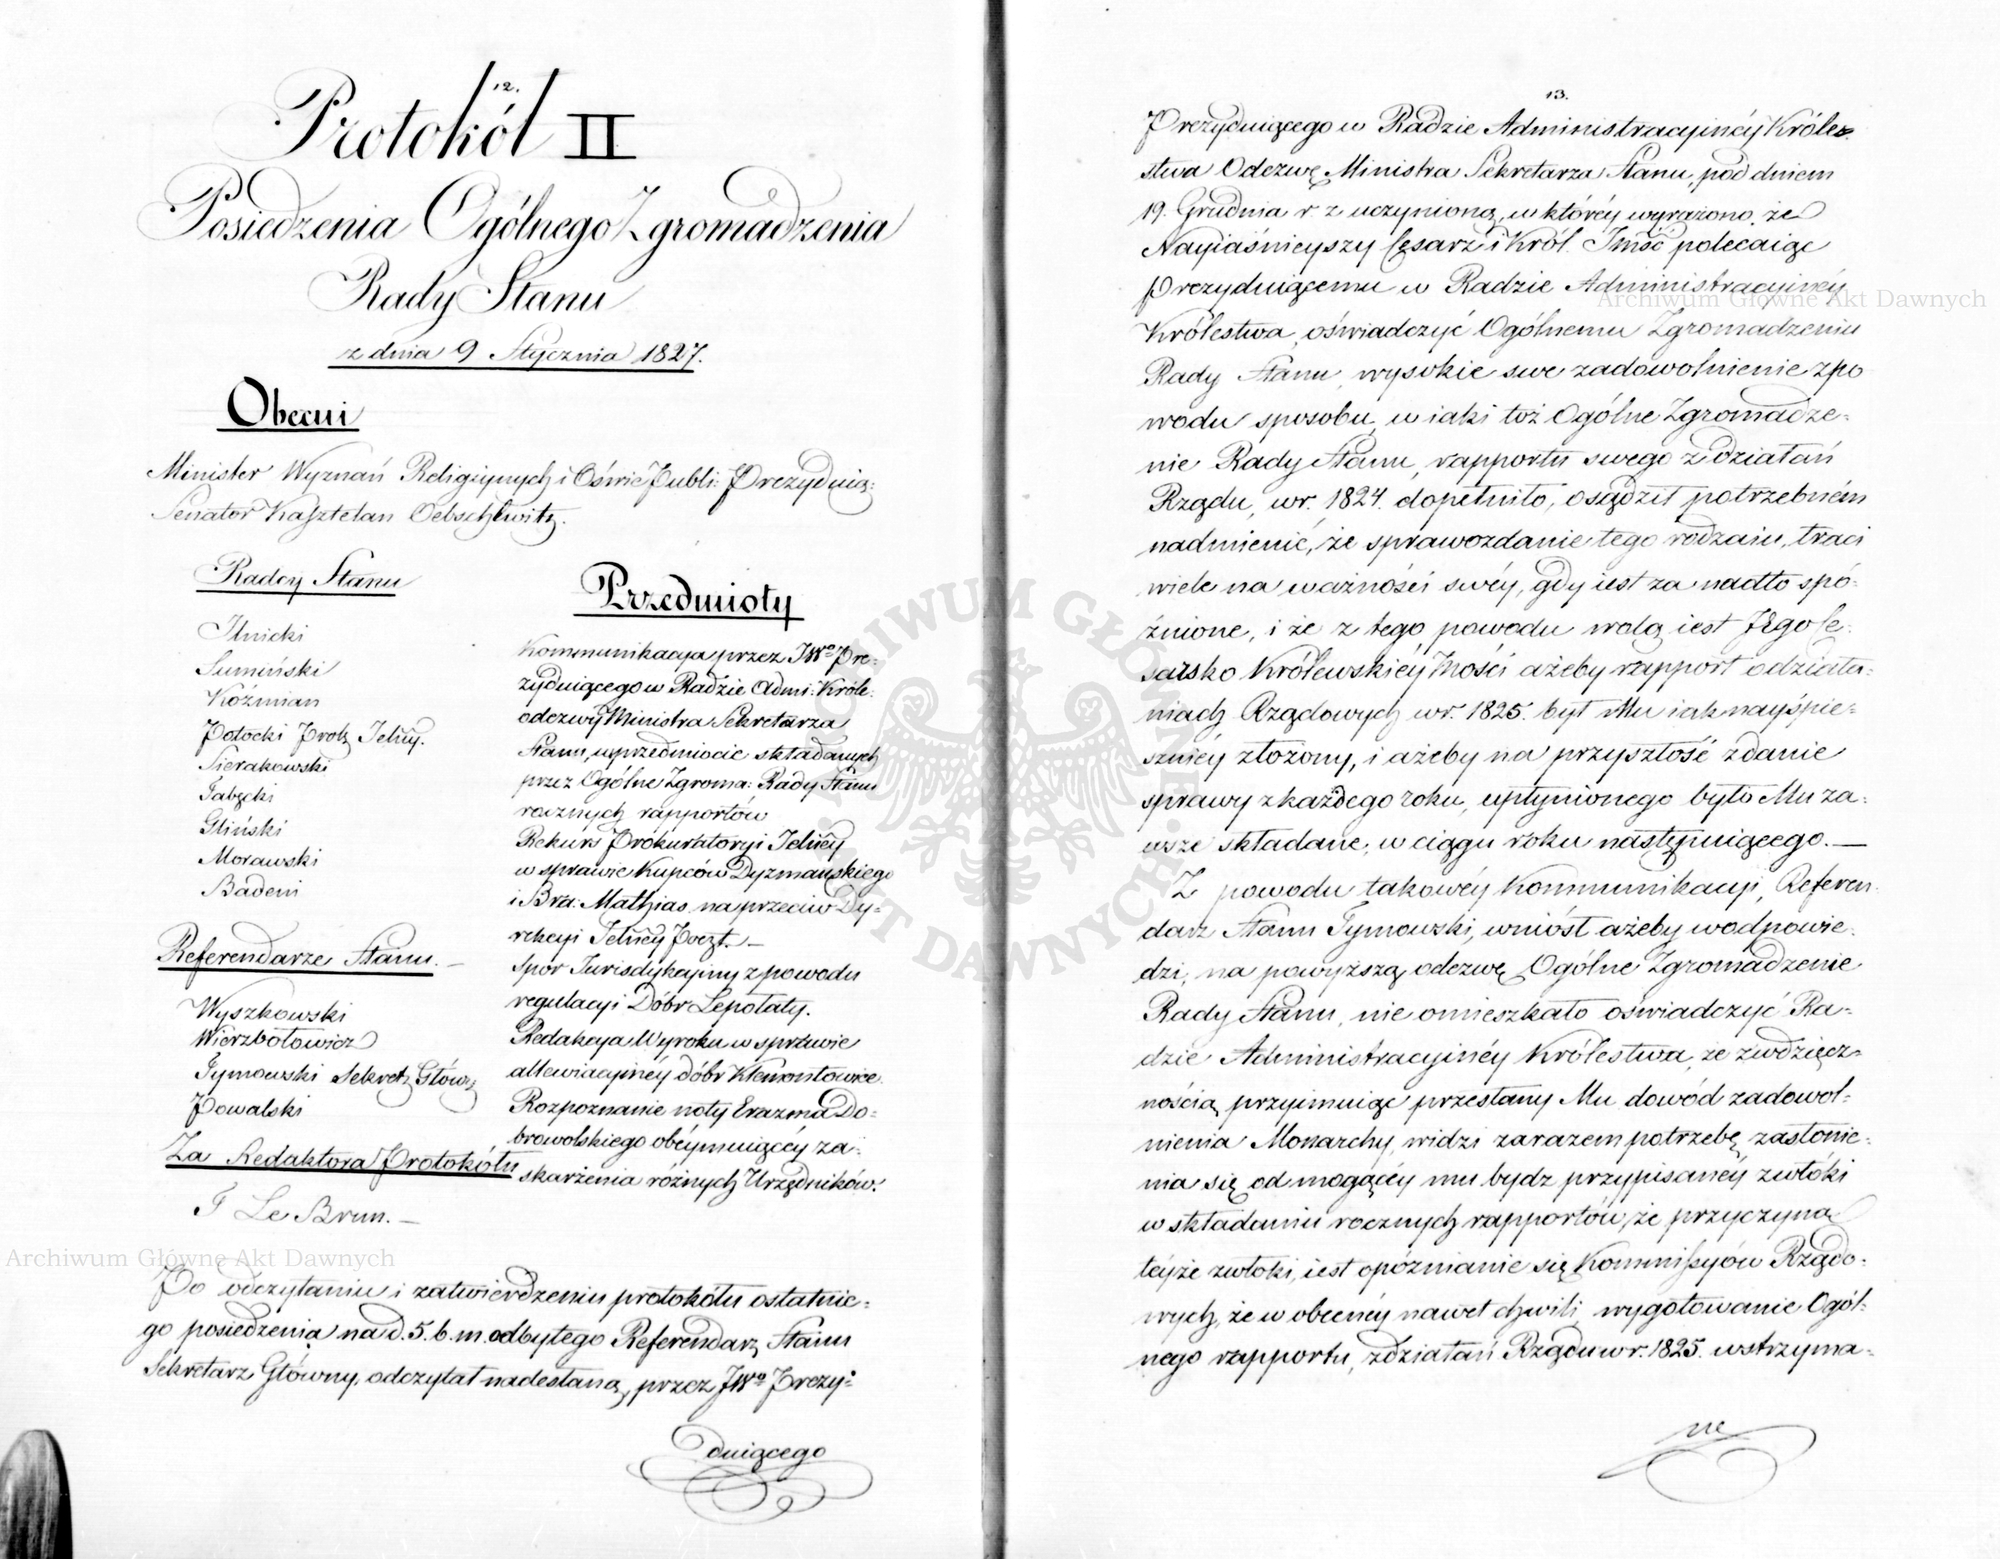 12.
Protokół II
Posiedzenia Ogólnego Zgromadzenia
Rady Stanu
z dnia 9 Stycznia 1827.
Obecni
Minister Wyznań Religiynych i Oświe Publi: Prezyduią:
Senator Kasztelan Oebschelwitz.
Radcy Stanu
Ilnicki
Sumiński
Koźmian
Potocki Prok Jelny.
Sierakowski
Gliński
Morawski
Badeni
Referendarze Stanu. —
Wyszkowski
Wierzbołowicz
Tymowski Sekret Główy
Kowalski
Za Redaktora Protokółu
F Le Brun. —
Przedmioty
Kommunikacya przez JWo Pre-
zyduiącego w Radzie Admi: Króle:
odezwy Ministra Sekretarza
Stanu, w przedmiocie składanych
przez Ogólne Zgroma: Rady Stanu
rocznych rapportów
Rekurs Prokuratoryi Jelney
w sprawie Kupców Dyzmańskiego
i Bra: Mathias na przeciw Dy-
rekcyi Jelney Poczt. —
Spór Jurisdykcyiny z powodu
regulacyi Dóbr Lepołaty.
Redakcya Wyroku w sprawie
allewiacyinéy dóbr Klemontowice.
Rozpoznanie noty Erazma Do-
browolskiego obéymuiącéy za-
skarżenia różnych Urzędników.
Po odczytaniu i zatwierdzeniu protokółu ostatnie-
go posiedzenia na d. 5. b. m. odbytego Referendarz Stanu
Sekretarz Główny, odczytał nadesłaną, przez JWo Prezy-
duiącego
13.
Prezyduiącego w Radzie Administracyinéy Króles-
stwa Odezwę Ministra Sekretarza Stanu, pod dniem
19. Grudnia r. z uczynioną, w któréy wyrażono, że
Nayiaśnieyszy Cesarz i Król Jmść polecaiąc
prezyduiącemu w Radzie Administracyinéy
Królestwa, oświadczyć Ogólnemu Zgromadzeniu
Rady Stanu, wysokie swe zadowolnienie z po
wodu sposobu, w iaki toż Ogólne Zgromadze-
nie Rady Stanu, rapportu swego z działań
Rządu, w r. 1824. dopełniło, osądził potrzebném
nadmienić, że sprawozdanie tego rodzaiu, traci
wiele na ważności swéy, gdy iest za nadto spó-
źnione, i że z tego powodu wolą iest Jego Ce-
sarsko Królewskiéy Mości ażeby rapport o działa-
niach Rządowych w r. 1825. był Mu iak nayśpie-
szniéy złożony, i ażeby na przyszłość zdanie
sprawy z każdego roku, upłynionego było Mu za-
wsze składane, w ciągu roku następuiącego. —
Z powodu takowéy Kommunikacyi, Referen-
darz Stanu Tymowski, wniósł ażeby w odpowie-
dzi, na powyższą odezwę Ogólne Zgromadzenie
Rady Stanu, nie omieszkało oświadczyć Ra-
dzie Administracyinéy Królestwa, że z wdzięcz-
nością przyimuiąc przesłany Mu dowód zadowol-
nienia Monarchy, widzi zarazem potrzebę zasłonie-
nia się od mogącéy mu bydź przypisanéy zwłóki
w składaniu rocznych rapportów, że przyczyną
téyże zwłoki, iest opóźnianie się Kommissyów Rządo-
wych, że w obecnéy nawet chwili, wygotowanie Ogól-
nego rapportu, z działań Rządu w r. 1825. wstrzyma-
ne
Archiwum Główne Akt Dawnych
Archiwum Główne Akt Dawnych
ARCHIWUM GŁÓWNE AKT DAWNYCH